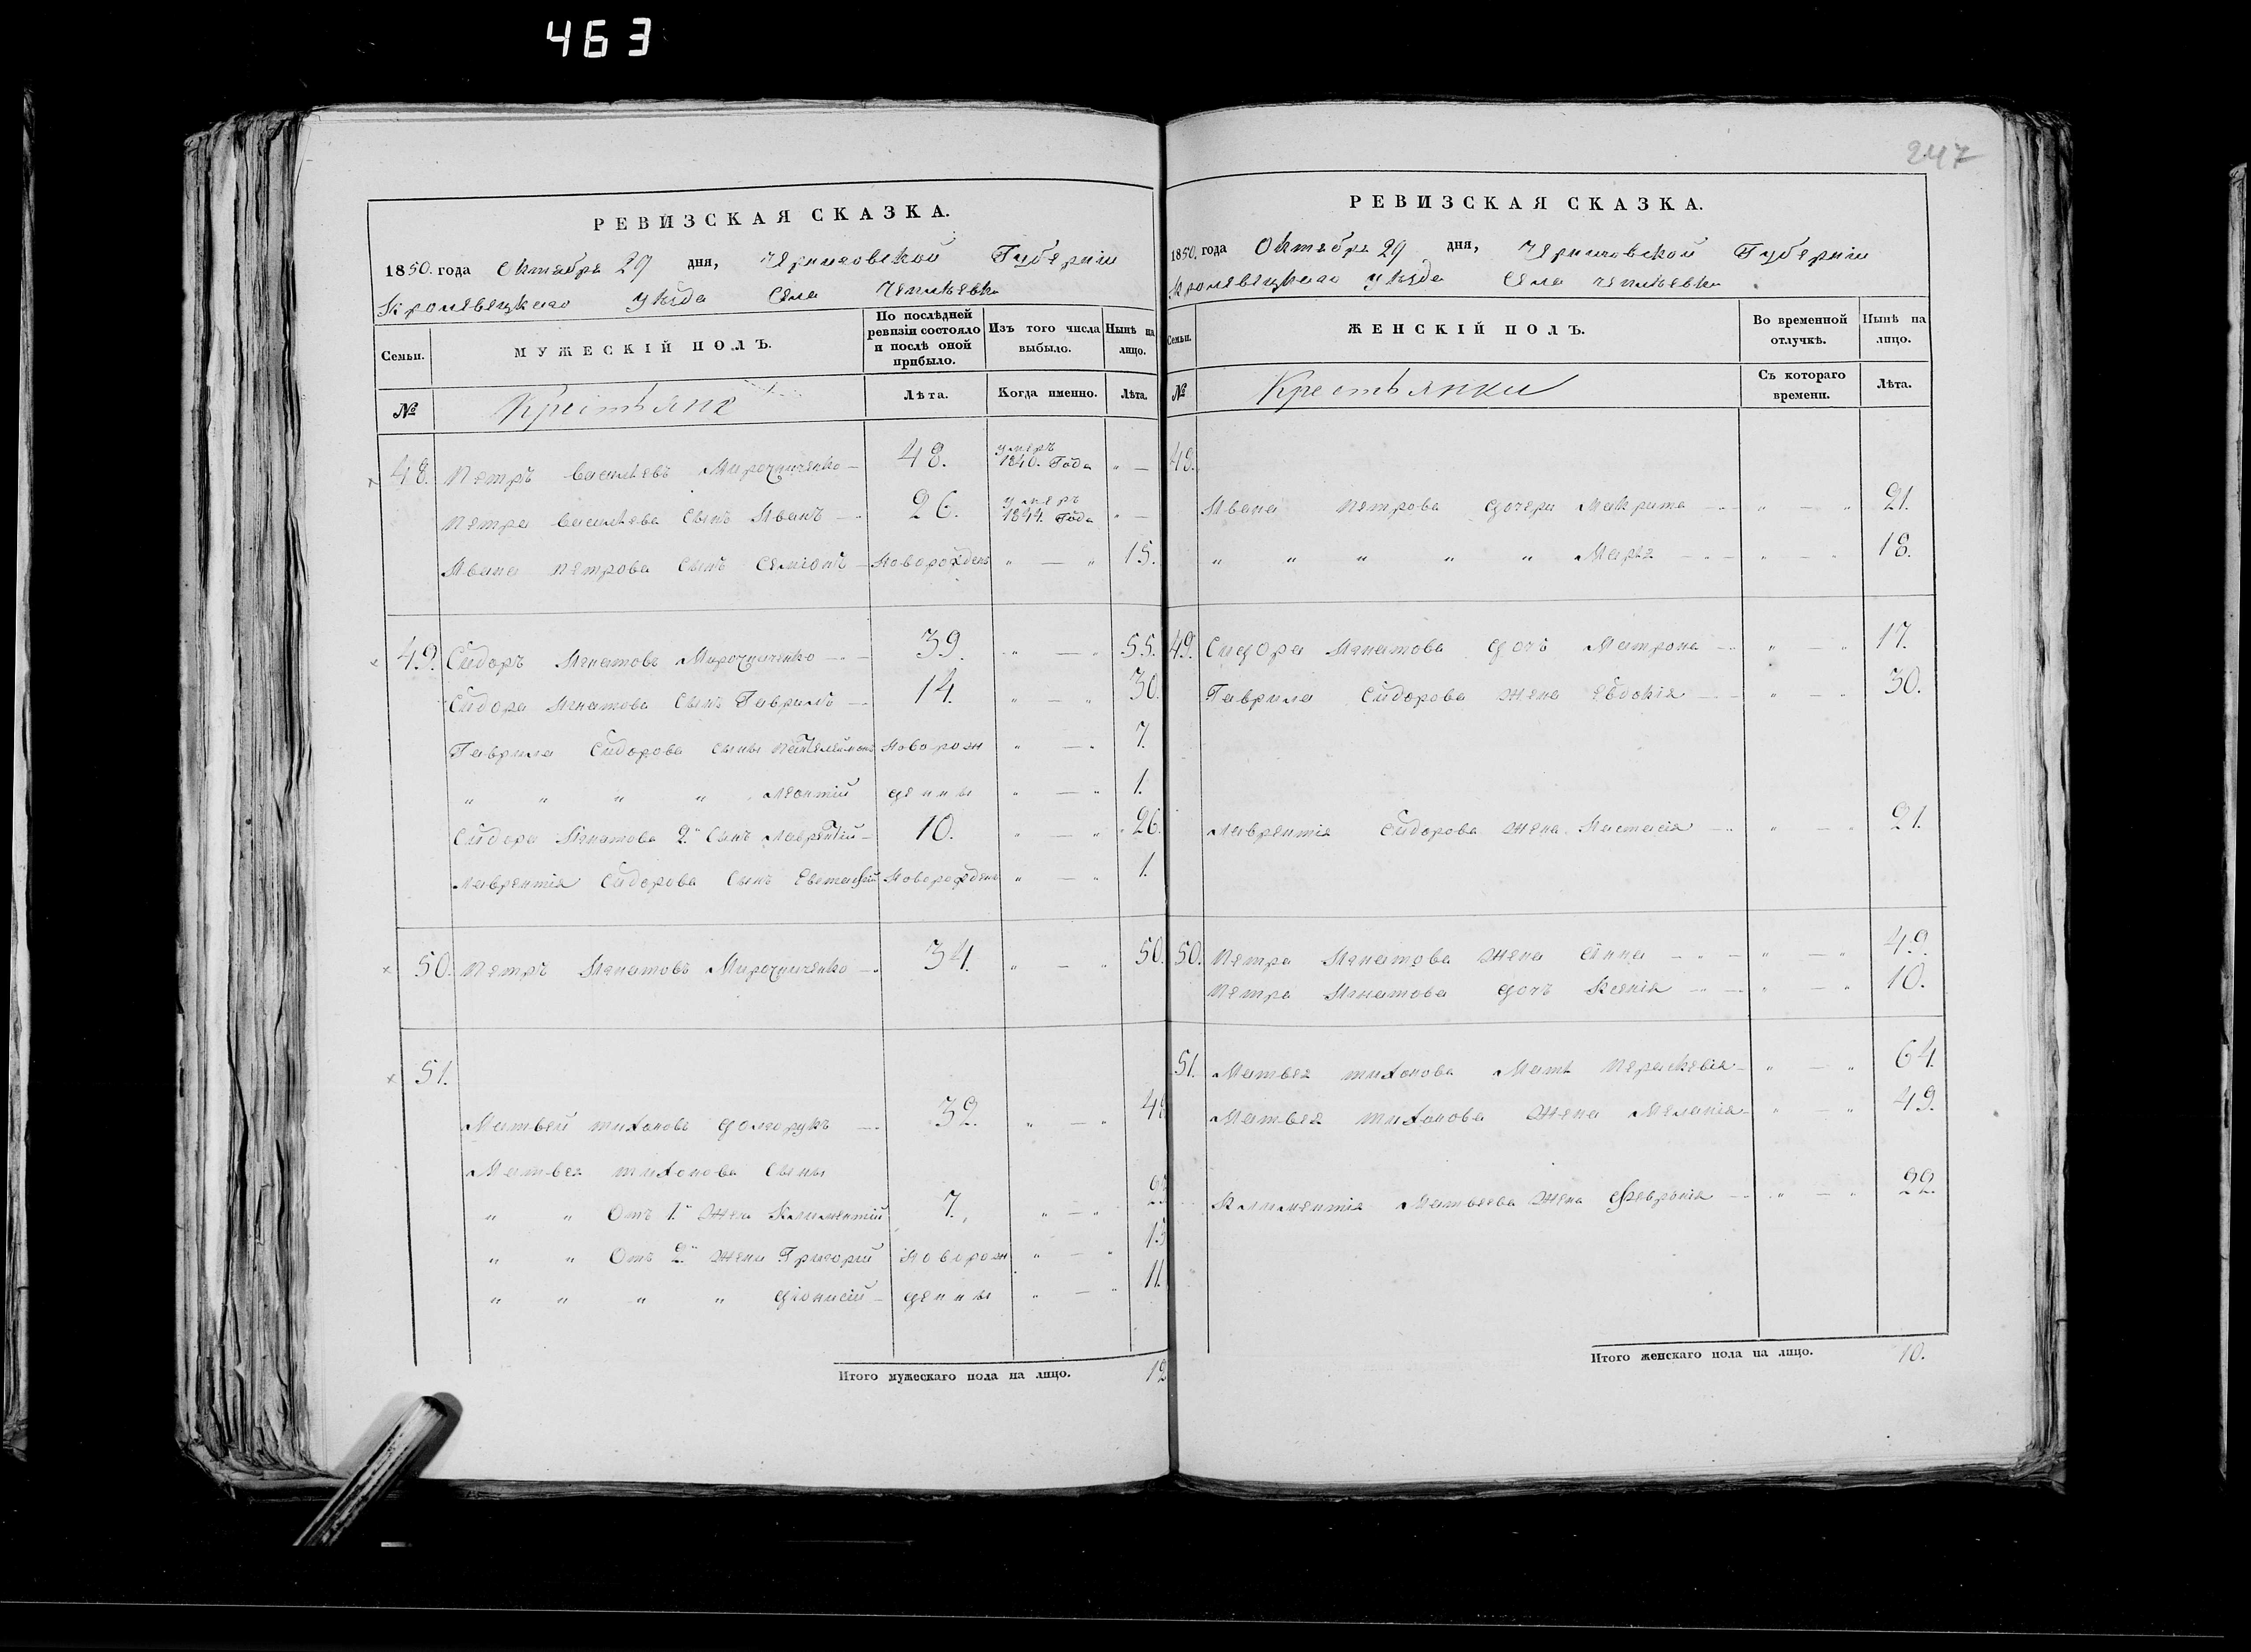 463
247
РЕВИЗСКАЯ СКАЗКА.
1850. года Октября 29 дня, Черниговской Губерніи
Кролевецкаго уѣзда Села Чепліевки
Семьи.
МУЖЕСКІЙ ПОЛЪ.
По послѣдней ревизіи состояло и послѣ оной прибыло.
Изъ того числа выбыло.
Нынѣ на лицо.
№
Крестьяне
Лѣта.
Когда именно.
Лѣта.
48. Петръ Васильевъ Мирошниченко 48. умеръ 1840. Года " —
Петра Васильева Сынъ Иванъ 26. умеръ 1844. Года " —
Ивана Петрова Сынъ Семіонъ Новорожденъ " — " 15.
49. Сидоръ Игнатовъ Мирошниченко 39. " — " 55.
Сидора Игнатова Сынъ Гаврилъ 14. " — " 30.
Гаврила Сидорова Сыны Пантелеймонъ Новорож " — " 7.
" " " " Леонтій денны " — " 1.
Сидора Игнатова 2й Сынъ Лаврентій 10. " — " 26.
Лаврентія Сидорова Сынъ Евстафій Новорожденъ " — " 1.
50. Петръ Игнатовъ Мирошниченко 34. " — " 50.
51.
Матвей Тихоновъ Долгорукъ 32. " — " 48
Матвея Тихонова Сыны
" " Отъ 1й Жены Климентій 7. " — " 23
" " Отъ 2й Жены Григорій Новорож " — " 15
" " " " Діонисій денны " — " 11.
Итого мужескаго пола на лицо. 12
РЕВИЗСКАЯ СКАЗКА.
1850. года Октября 29 дня, Черниговской Губерніи
Кролевецкаго уѣзда Села Чепліевки
Семьи.
ЖЕНСКІЙ ПОЛЪ.
Во временной отлучкѣ.
Нынѣ на лицо.
№
Крестьянки
Съ котораго времени.
Лѣта.
48.
Ивана Петрова дочери Макрита " — " 21.
" " " " " Марья " — " 18.
49. Сидора Игнатова дочь Матрона " — " 17.
Гаврила Сидорова жена Евдокія " — " 30.
Лаврентія Сидорова жена Настасія " — " 21.
50. Петра Игнатова жена Анна " — " 49.
Петра Игнатова дочь Ксенія " — " 10.
51. Матвея Тихонова Мать Параскевія " — " 64.
Матвея Тихонова Жена Меланія " — " 49.
Климентія Матвеева Жена Февронія " — " 22.
Итого женскаго пола на лицо. 10.